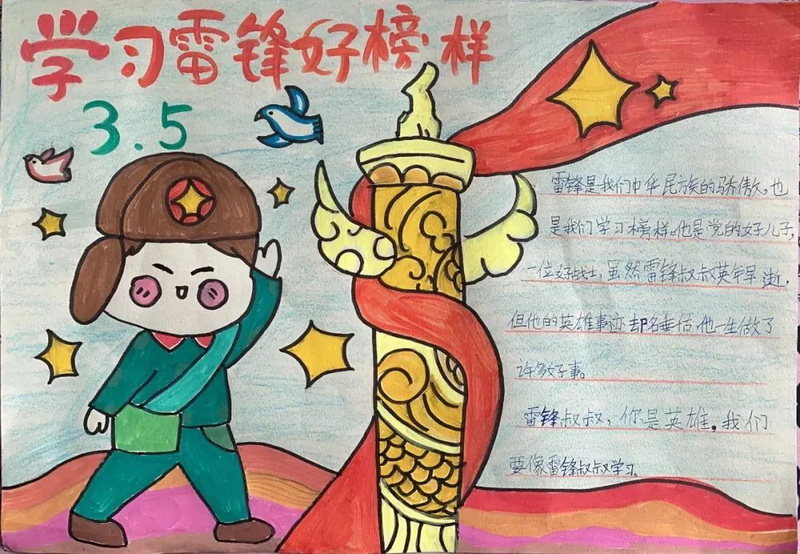 学习雷锋好榜样
3.5
雷锋是我们中华民族的骄傲，也
是我们学习榜样。他是党的好儿子，
一位好战士，虽然雷锋叔叔英年早逝，
但他的英雄事迹却名垂千古，他一生做了
许多好事。
雷锋叔叔，你是英雄，我们
要像雷锋叔叔学习。